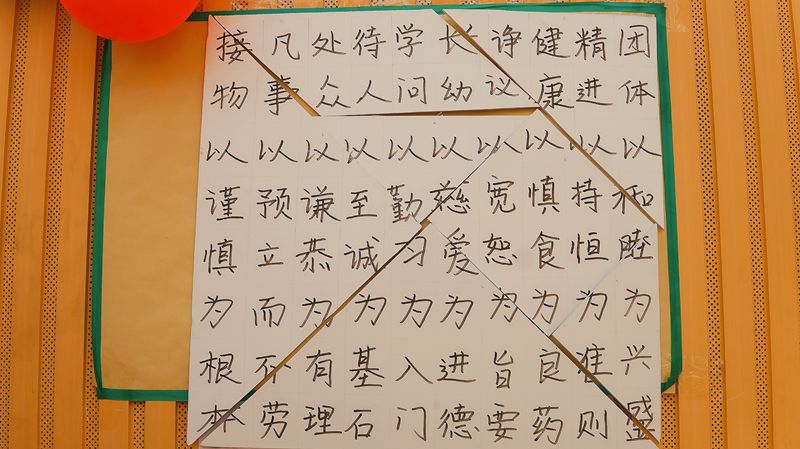 团体以和睦为兴盛
精进以持恒为准则
健康以慎食为良药
诤议以宽恕为旨要
长幼以慈爱为进德
学问以勤习为入门
待人以至诚为基石
处众以谦恭为有理
凡事以预立而不劳
接物以谨慎为根本